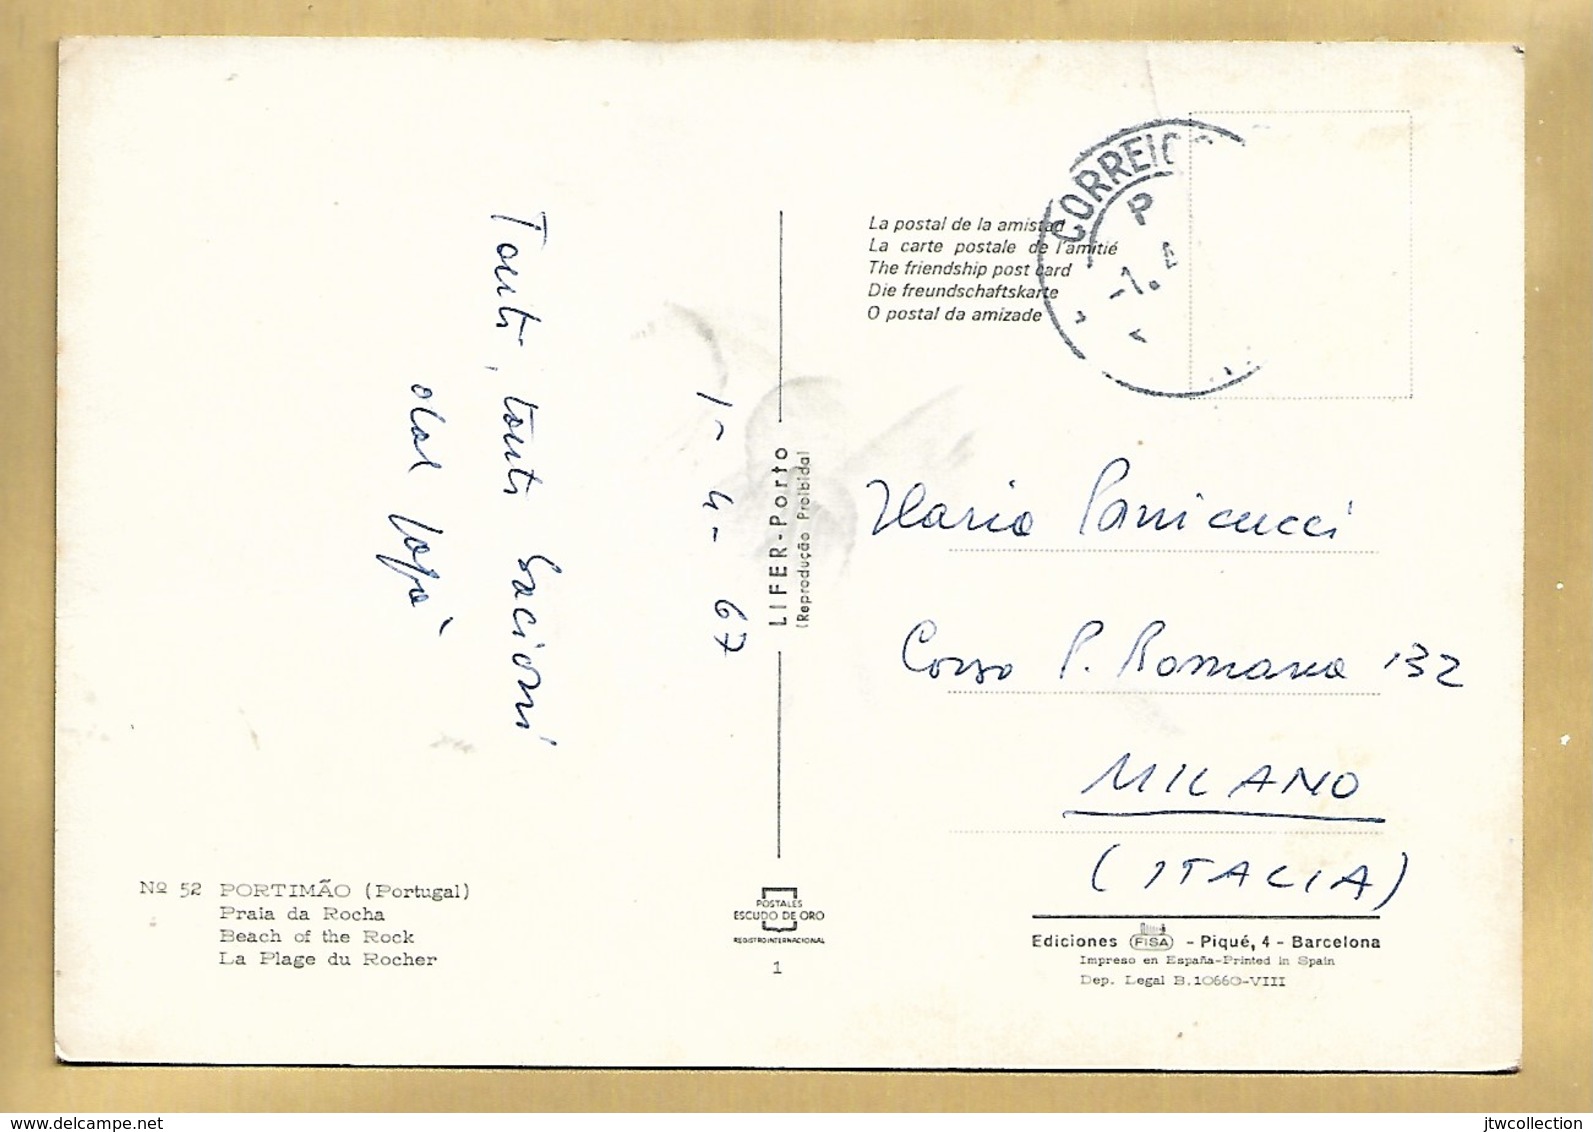 1- 4- 67
Tanti, tanti bacioni
dal papà
La postal de la amistad
La carte postale de l'amitié
The friendship post card
Die freundschaftskarte
O postal da amizade
CORREIOS
P
-1.
LIFER-Porto
(Reprodução Proibida)
Ilaria Panicucci
Corso P. Romana 132
MILANO
(ITALIA)
Nº 52 PORTIMÃO (Portugal)
Praia da Rocha
Beach of the Rock
La Plage du Rocher
POSTALES
ESCUDO DE ORO
REGISTRO INTERNACIONAL
1
Ediciones FISA - Piqué, 4 - Barcelona
Impreso en España-Printed in Spain
Dep. Legal B.10660-VIII
jtwcollection